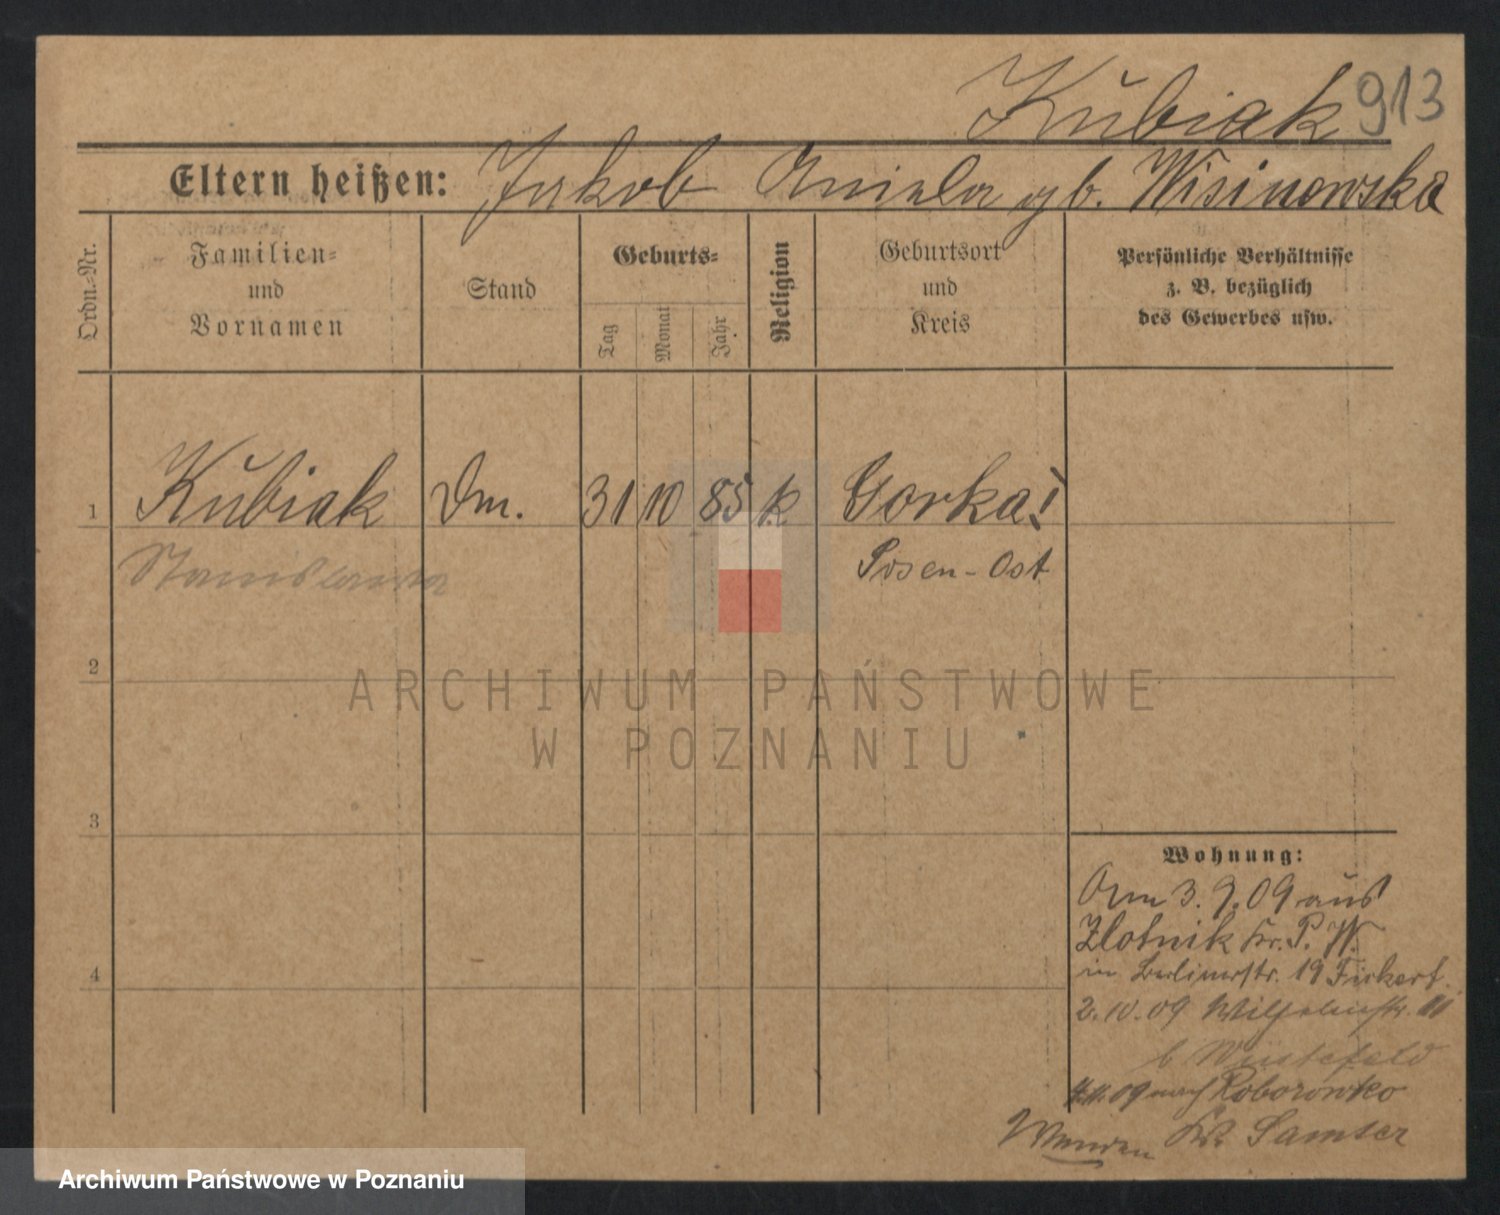 Kubiak 913
Eltern heißen: Jakob Aniela gb. Wisinewska
Ordn.-Nr.
Familien-
und
Vornamen
Stand
Geburts-
Tag
Monat
Jahr
Religion
Geburtsort
und
Kreis
Persönliche Verhältnisse
z. B. bezüglich
des Gewerbes usw.
1 Kubiak Dm. 31 10 85 k Gorka!
Stanislawa Posen-Ost
2
ARCHIWUM PAŃSTWOWE
W POZNANIU
3
Wohnung:
Am 3.9.09 aus
Zlotnik Kr. P. W.
4
in Berlinerstr. 19 Fickert.
2.10.09 Wilhelmstr. 11
b Wüstefeld
4.11.09 nach Roborowko
Wenden Kr Samter
Archiwum Państwowe w Poznaniu